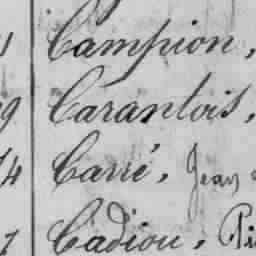 1 Campion,
9 Carantois,
4 Carré, Jean
7 Cadiou, Pi